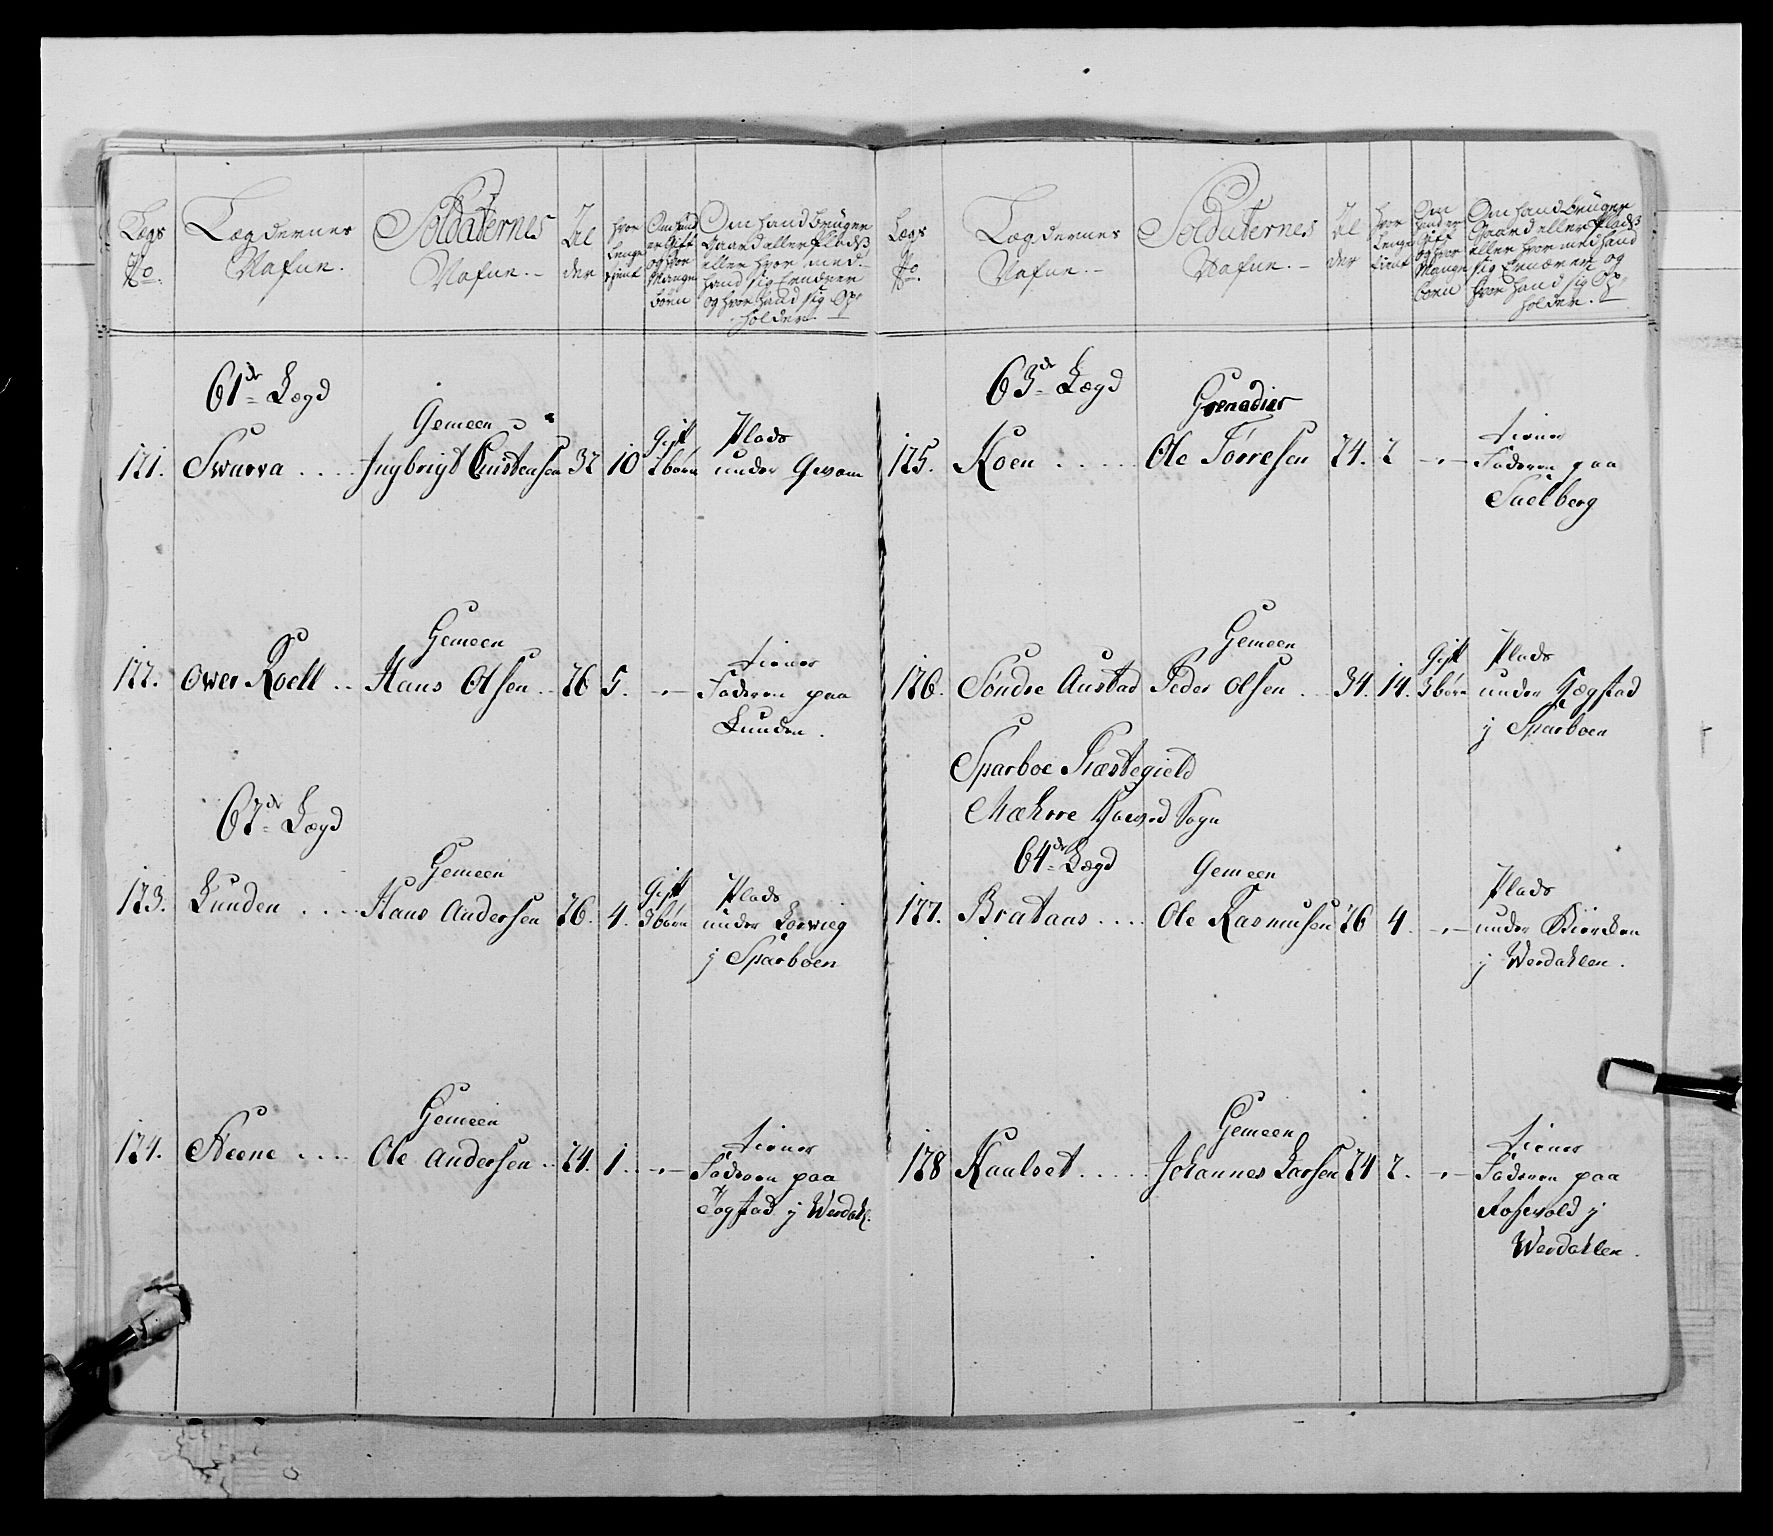 Lægs
No.
Lægdernes
Nafne.
Soldaternes
Nafne.-
Al
der
hvor
Lenge
tient
Om hand
er Gift
og hvor
Mange
börn
Om hand bruger
Gaard eller Plads
eller hvor med
hand sig Ernærer
og hvor hand sig Op-
holder.
61de Lægd
121. Swarva .... Gemeen
Ingbrigt Christensen 32 10 Gift
2 börn Plads
under Gevom
122. Ower Roell .. Gemeen
Hans Olsen .. 26 5. -,- tiener
Faderen paa
Lunden.
62de Lægd
123. Lunden .... Gemeen
Hans Andersen 26. 4. Gift
3 börn Plads
under Lorwieg
j Sparboen
124. Steene .... Gemeen
Ole Andersen .. 24. 1. -,- tiener
Faderen paa
Togstad j Werdahl.
Lægs
No.
Lægdernes
Nafne.-
Soldaternes
Nafne.-
Al
der
hvor
Lenge
tient
Om
hand er
Gift
og hvor
Mange
börn
Om hand bruger
Gaard eller Plads
eller hvor med hand
sig Ernærer og
hvor hand sig Op-
holder.
63de Lægd
125. Moen ..... Grenadier
Ole Törresen 24. 2 -,- tiener
Faderen paa
Suelberg
126. Söndre Austad Gemeen
Peder Olsen .. 34. 14. Gift
3 börn Plads
under Hægstad
j Sparboen
Sparboe Præstegield
Mæhrre Hoved Sogn
64de Lægd
127. Brataas .... Gemeen
Ole Rasmusen 26 4. -,- Plads
under Biercken
j Werdahlen.
128 Kaalset ..... Gemeen
Johannes Larsen 24 2. -,- tiener
Faderen paa
Rosvold j
Werdahlen.